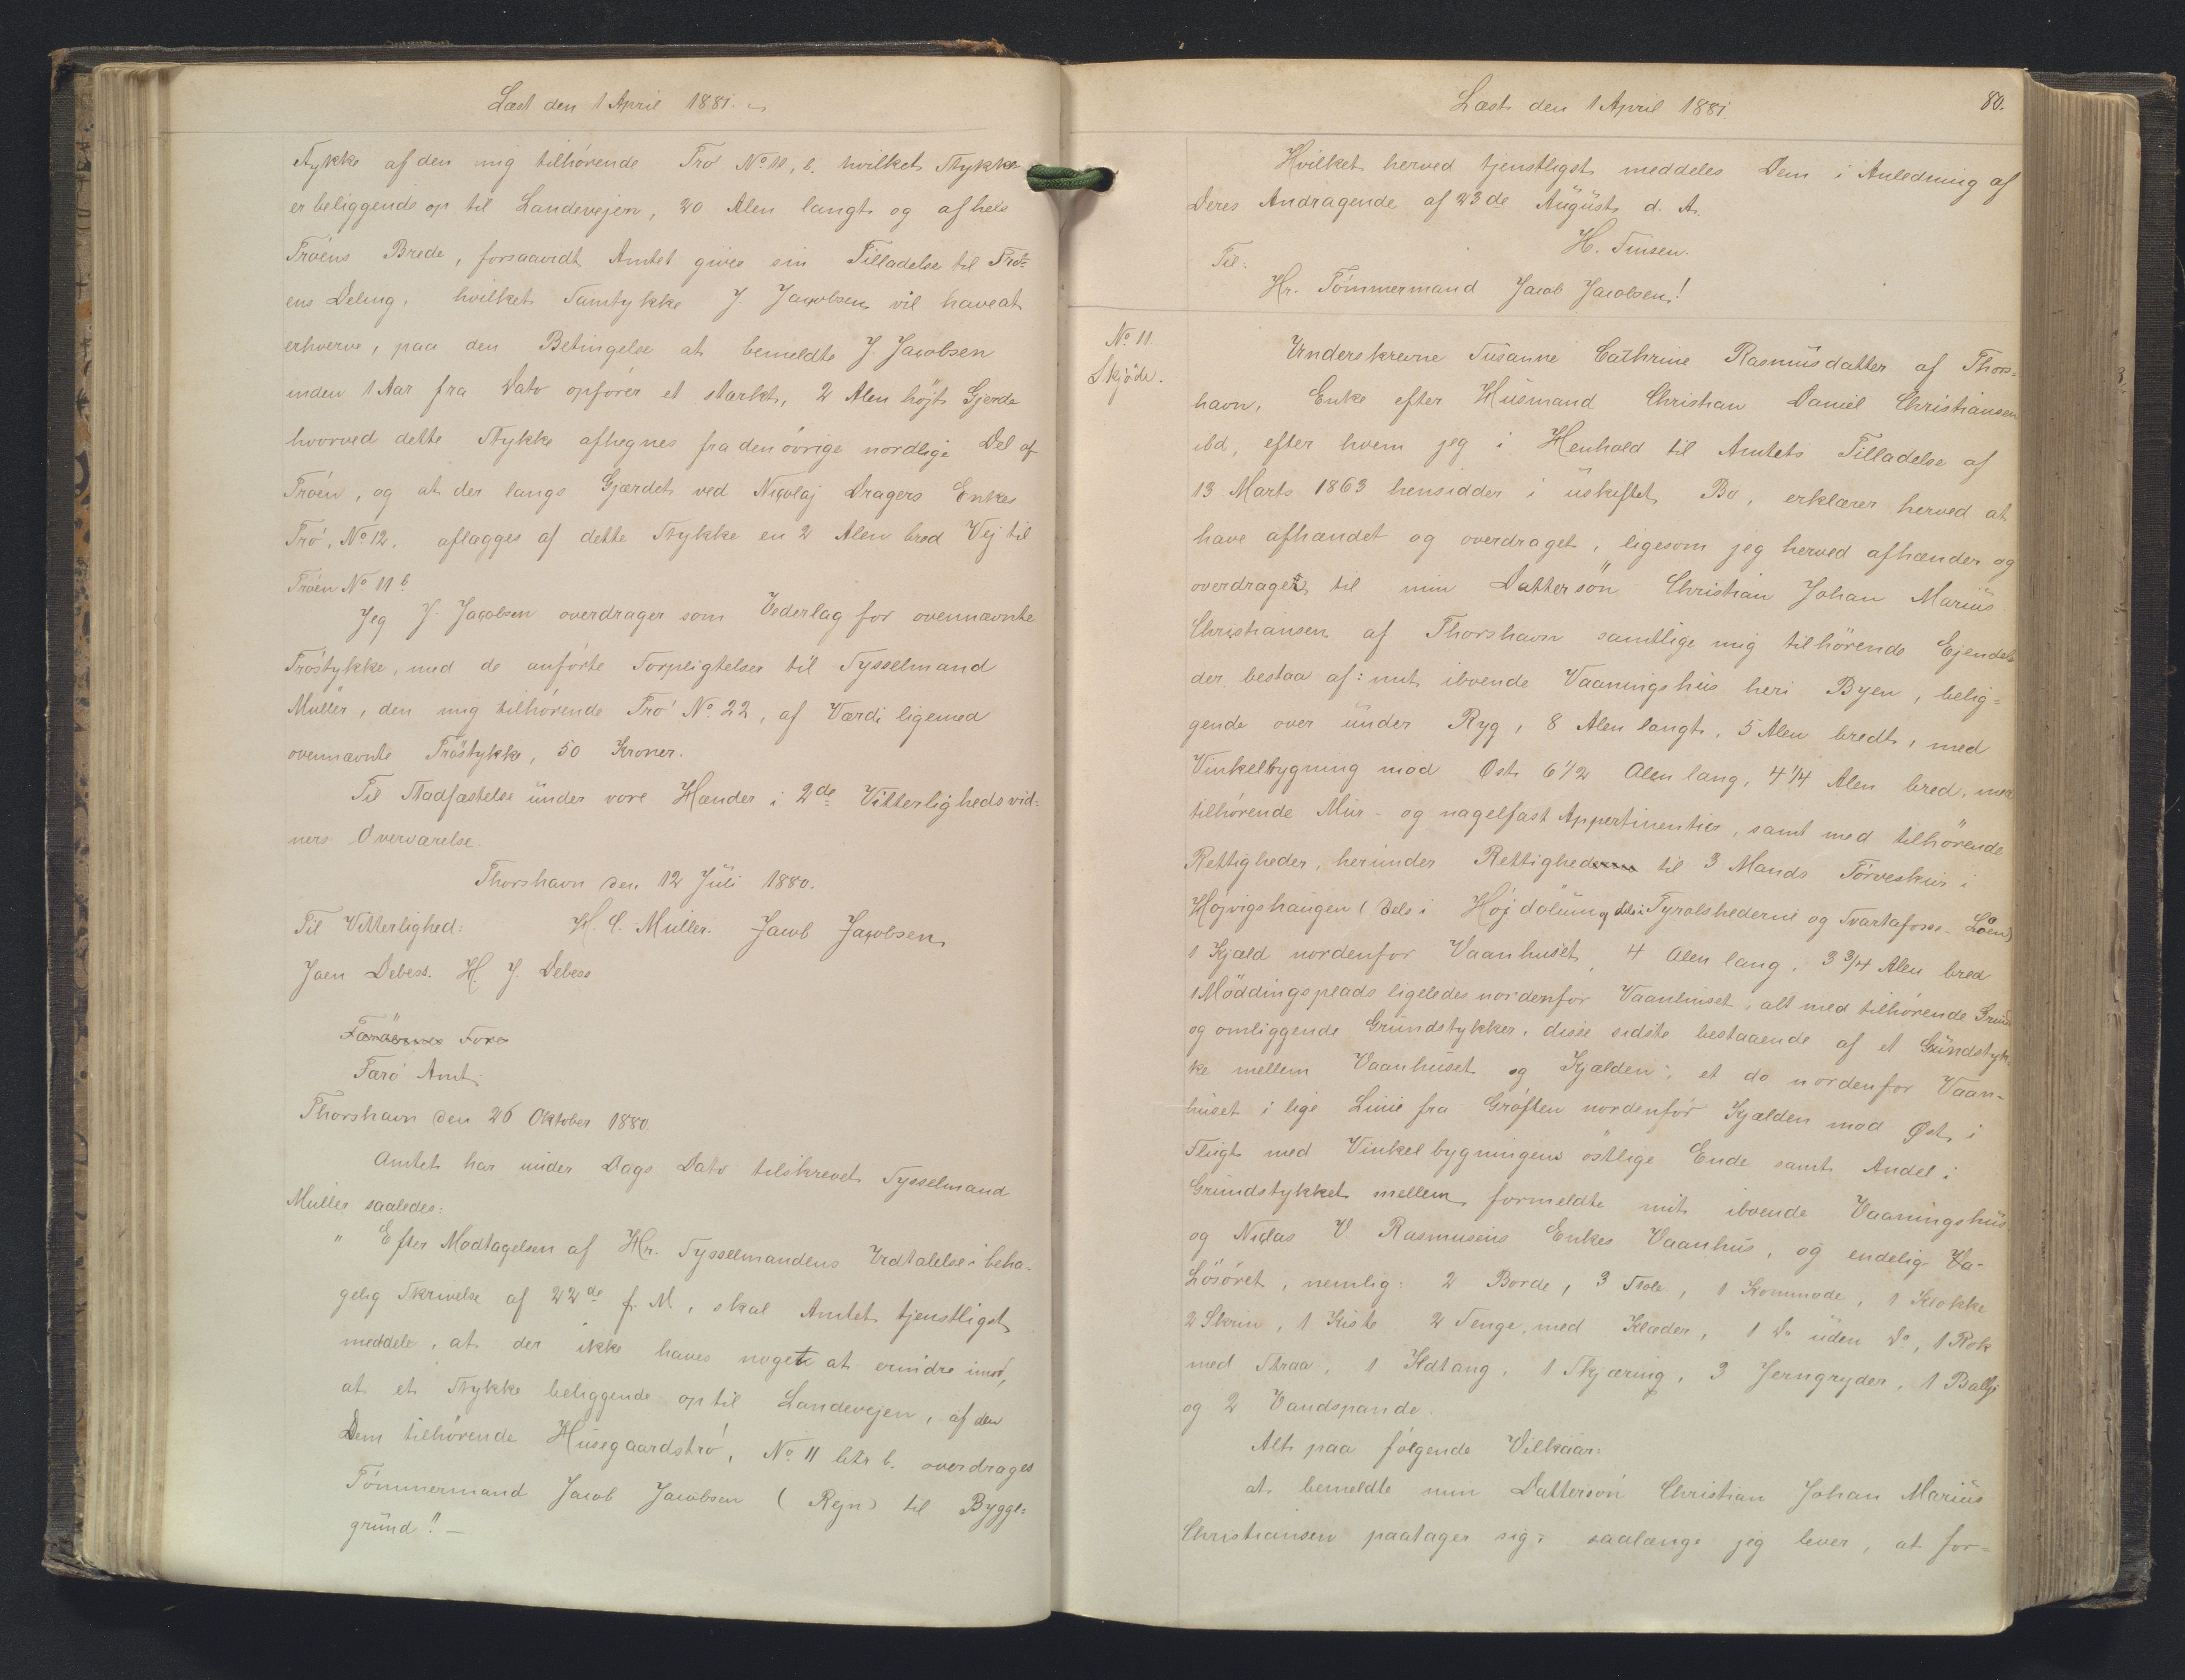 Læst den 1 April 1881.
Stykke af den mig tilhørende Trö No 11, b. hvilket Stykke
er beliggende op til Landevejen, 20 Alen langt og af hele
Tröens Brede, forsaavidt Amtet gives sin Tilladelse til Trö=
ens Deling, hvilket Samtykke J. Jacobsen vil have at
erhverve, paa den Betingelse at bemeldte J. Jacobsen
inden 1 Aar fra Dato opfører et stærkt, 2 Alen højt Gjerde
hvorved dette Stykke afhegnes fra den øvrige nordlige Del af
Tröen, og at der langs Gjærdet ved Nicolaj Dragers Enkes
Trö, No 12, aflægges af dette Stykke en 2 Alen bred Vej til
Tröen No 11 b.
Jeg J. Jacobsen overdrager som Vederlag for ovennævnte
Tröstykke, med de anførte Forpligtelser til Sysselmand
Müller, den mig tilhørende Trö No 22, af Værdi ligemed
ovennævnte Tröstykke, 50 Kroner.
Til Stadfæstelse under vore Hænder i 2de Vitterligheds vid=
ners Overværelse.
Thorshavn den 12 Juli 1880.
Til Vitterlighed: H. C. Müller. Jacob Jacobsen
Joen Debess. H. J. Debess
Færøernes Fore
Færö Amt
Thorshavn den 26 Oktober 1880.
Amtet har under Dags Dato tilskrevet Sysselmand
Müller saaledes:
" Efter Modtagelsen af Hr. Sysselmandens Udtalelse i beha=
gelig Skrivelse af 22de f. M., skal Amtet tjenstligst
meddele, at der ikke haves noget at erindre imod,
at et Stykke beliggende op til Landevejen, af den
Dem tilhørende Husegaardströ, No 11 litr b. overdrages
Tömmermand Jacob Jacobsen (Rejn) til Bygge=
grund". —
Læst den 1 April 1881
80.
Hvilket herved tjenstligst meddeles Dem i Anledning af
Deres Andragende af 23de August d. A.
H. Finsen.
Til:
Hr. Tömmermand Jacob Jacobsen!
No 11.
Skjöde.
Underskrevne Susanne Cathrine Rasmusdatter af Thors=
havn, Enke efter Husmand Christian Daniel Christiansen
ibd, efter hvem jeg i Henhold til Amtets Tilladelse af
13 Marts 1863 hensidder i uskiftet Bo, erklærer herved at
have afhændet og overdraget, ligesom jeg herved afhænder og
overdraget til min Dattersön Christian Johan Marius
Christiansen af Thorshavn samtlige mig tilhörende Ejendele
der bestaa af: mit iboende Vaaningshus heri Byen, belig=
gende over under Ryg, 8 Alen langt, 5 Alen bredt, med
Vinkelbygning mod Öst 6 1/2 Alen lang, 4 1/4 Alen bred, med
tilhørende Mur- og nagelfast Appertinentier, samt med tilhörende
Rettigheder, herunder Rettigheden til 3 Mands Törveskur i
Højvigshaugen (dels i Høj dölum og dels i Tyralshederne og Svartafoss- Löen)
1 Kjæld nordenfor Vaanhuset, 4 Alen lang, 3 3/4 Alen bred
1 Möddingsplads ligeledes nordenfor Vaanhuset, alt med tilhørende Grund
og omliggende Grundstykker, disse sidste bestaaende af et Gundstyk=
ke mellem Vaanhuset og Kjælden; et do nordenfor Vaan-
huset i lige Linie fra Gröften nordenfor Kjælden mod Øst, i
Flugt med Vinkelbygningens östlige Ende samt Andel i
Grundstykket mellem formeldte mit iboende Vaaningshus
og Niclas V. Rasmusens Enkes Vaanhus, og endelig Va-
Lösöret, nemlig: 2 Borde, 3 Stole, 1 Kommode, 1 Klokke
2 Skrin, 1 Kiste 2 Senge, med Klæder, 1 Do uden Do, 1 Rok
med Straa, 1 Ildtang, 1 Skjæring, 3 Jerngryder, 1 Balje
og 2 Vandspande.
Alt paa følgende Vilkaar:
at bemeldte min Dattersön Christian Johan Marius
Christiansen paatager sig, saalænge jeg lever, at for=